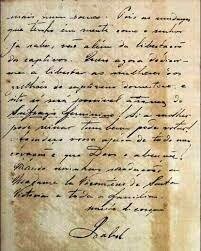 mais num socios. Pois as mudanças
que tenho em mente como o senhor
já sabe, vão além da libertação
do captivos. Quero agora dedicar-
me a libertar as mulheres dos
grilhões do captiveiro domestico, e
isto só será possivel atravez do
Sufragio Feminino! Si a mulher
pode reinar tambem pode votar!
Agradeço vossa ajuda de todo meu
coração e que Deos o abençoe!
Mando minhas saudações a
Madame la Vicomtesse de Santa
Victoria e toda a familia.
muito de coração
Isabel